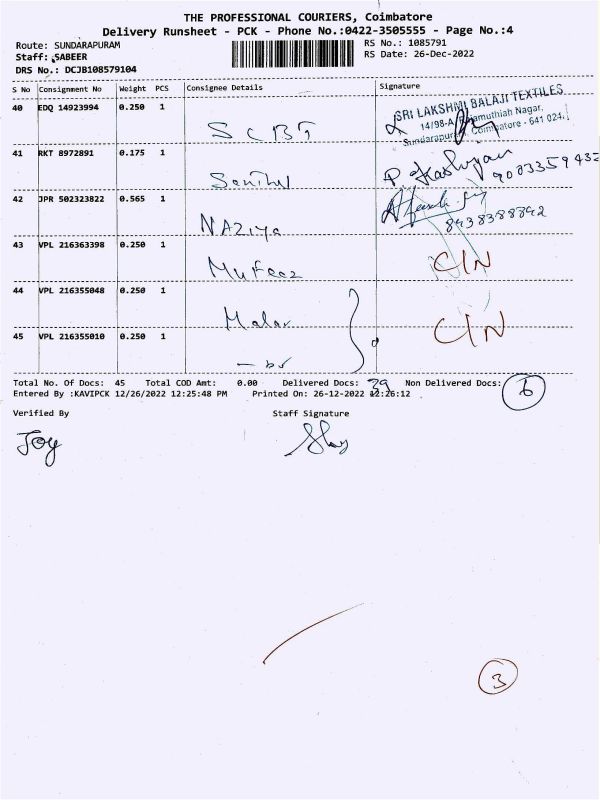 THE PROFESSIONAL COURIERS, Coimbatore
Delivery Runsheet - PCK - Phone No.:0422-3505555 - Page No.:4
Route: SUNDARAPURAM
Staff: SABEER
DRS No.: DCJB108579104
RS No.: 1085791
RS Date: 26-Dec-2022
S No Consignment No Weight PCS Consignee Details Signature
40 EDQ 14923994 0.250 1 SCBT
SRI LAKSHMI BALAJI TEXTILES
14/98-A, muthiah Nagar,
Sundarapur Coimbatore - 641 024.
41 RKT 8972891 0.175 1 Senthil
9003359432
42 JPR 502323822 0.565 1 NAZIya
8438388842
43 VPL 216363398 0.250 1 Mufeez C/N
44 VPL 216355048 0.250 1 Malar C/N
45 VPL 216355010 0.250 1
Total No. Of Docs: 45 Total COD Amt: 0.00 Delivered Docs: 39 Non Delivered Docs: 6
Entered By :KAVIPCK 12/26/2022 12:25:48 PM Printed On: 26-12-2022 12:26:12
Verified By Staff Signature
Joy
3